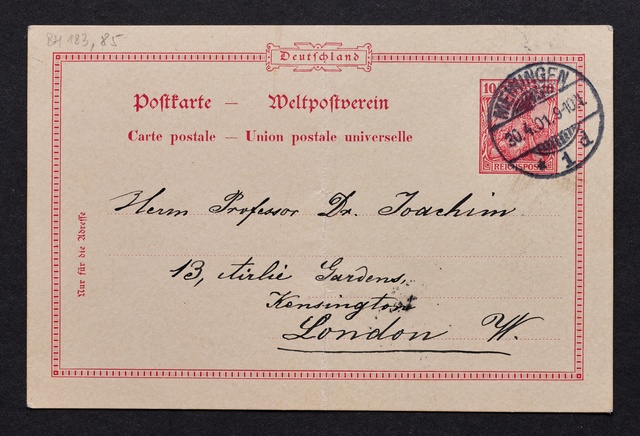 BH 183, 85
Deutschland
Postkarte — Weltpostverein
Carte postale — Union postale universelle
10
REICHSPOST
MEININGEN
30.4.01.9-10N.
* 1 d
Nur für die Adresse
Herrn Professor Dr. Joachim
13, Airlie Gardens,
Kensington
London W.